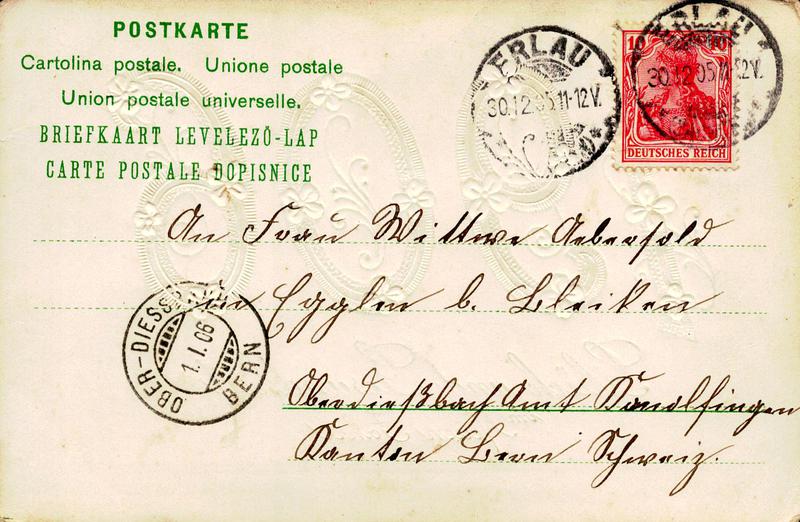 POSTKARTE
Cartolina postale. Unione postale
Union postale universelle.
BRIEFKAART LEVELEZŐ-LAP
CARTE POSTALE DOPISNICE
ERLAU
30.12.05.11-12V.
ERLAU
30.12.05.11-12V.
10 10
DEUTSCHES REICH
An Frau Wittwe Aebersold
Egglen b. Bleiken
Oberdießbach Amt Konolfingen
Kanton Bern Schweiz.
OBER-DIESSBACH
1.I.06
BERN